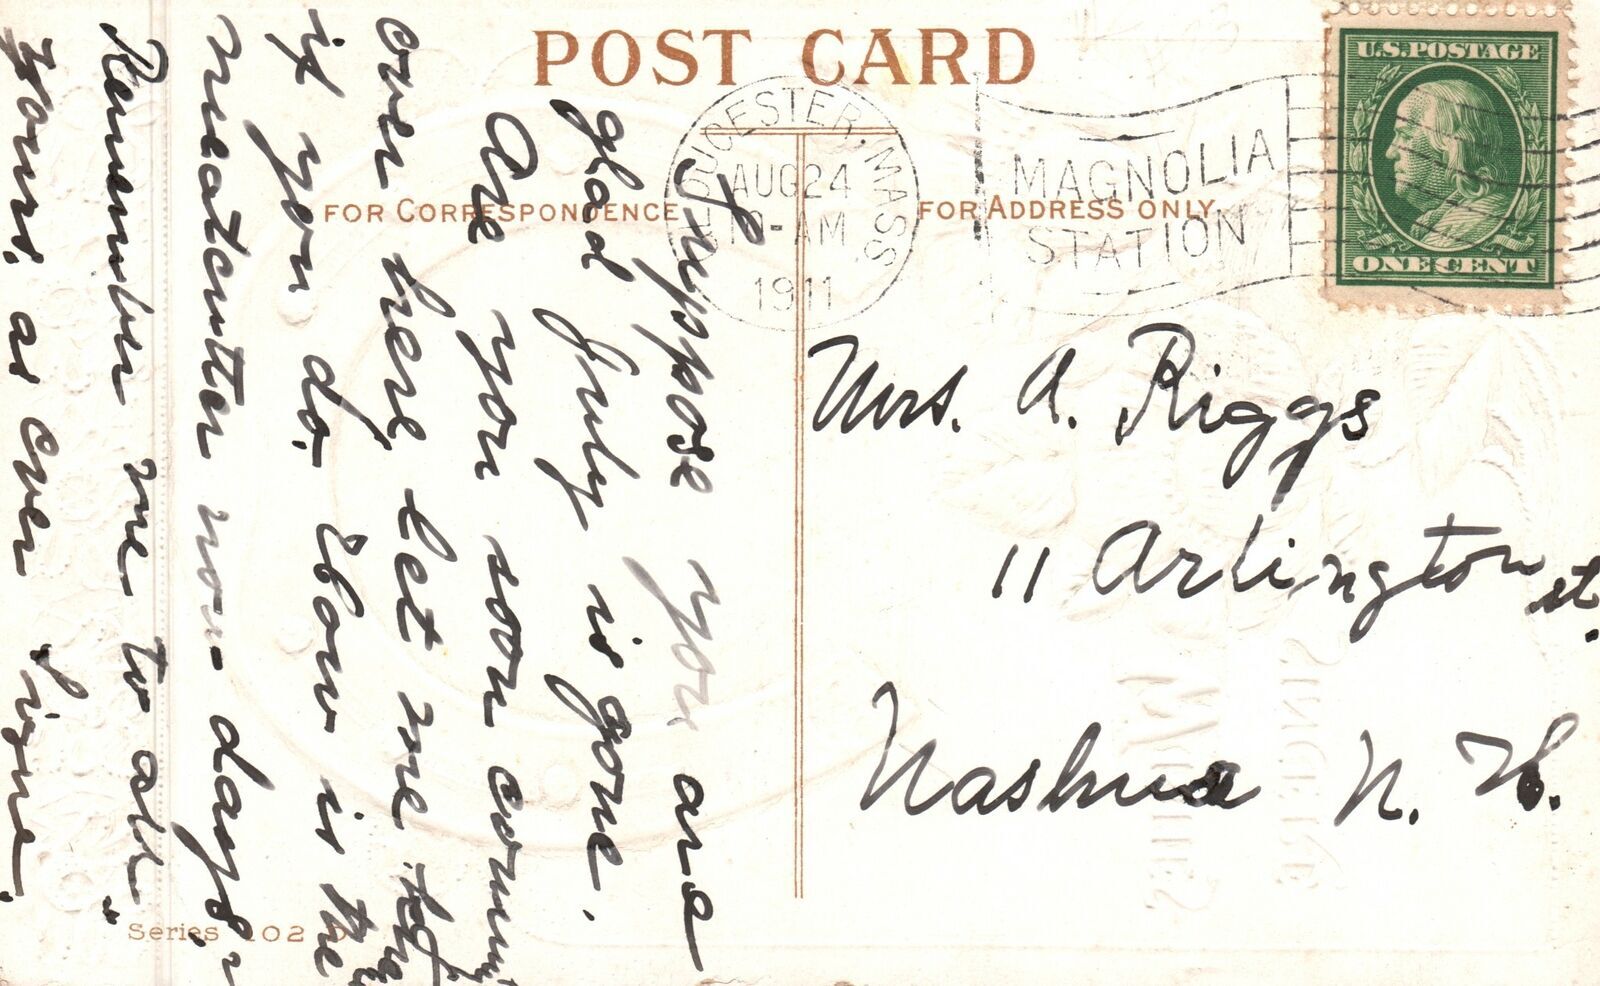 POST CARD
FOR CORRESPONDENCE
FOR ADDRESS ONLY.
GLOUCESTER, MASS.
AUG 24
-AM
1911
MAGNOLIA
STATION
U.S. POSTAGE
ONE CENT
I suppose you are
glad July is gone.
Are you soon coming
over here let me
if you do. How is the
meatcutter now-days,
Remember me to all.
Yours as ever Signe.
Mrs. A. Riggs
11 Arlington st.
Nashua N. H.
Series 102